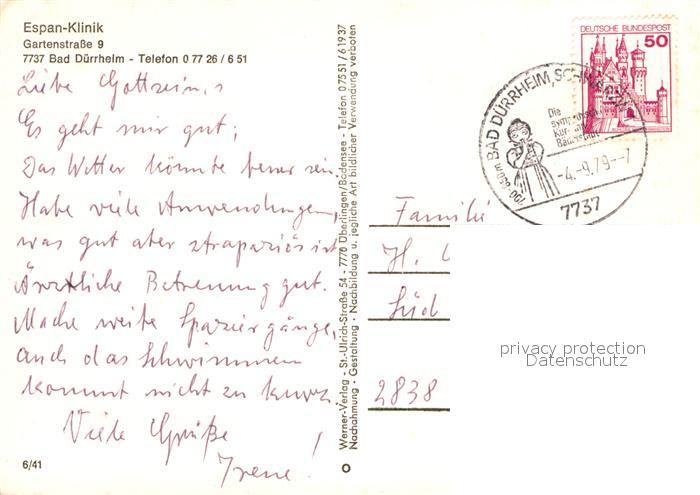 Espan-Klinik
Gartenstraße 9
7737 Bad Dürrheim - Telefon 0 77 26 / 6 51
Liebe
Es geht mir gut;
Das Wetter könnte besser sein.
Habe viele Anwendungen,
was gut aber strapaziös ist
Ärztliche Betreuung gut.
Mache weite Spaziergänge,
auch das Schwimmen
kommt nicht zu kurz.
Viele Grüße
Irene!
6/41
Werner-Verlag · St.-Ulrich-Straße 54 - 7770 Überlingen/Bodensee - Telefon 07551/61937
Nachahmung · Gestaltung · Nachbildung u. jegliche Art bildlicher Verwendung verboten
DEUTSCHE BUNDESPOST
50
BAD DÜRRHEIM,
700-850m
Die
Kur- und
-4.-9.79--7
7737
Familie
H.
Süd
2838
privacy protection
Datenschutz